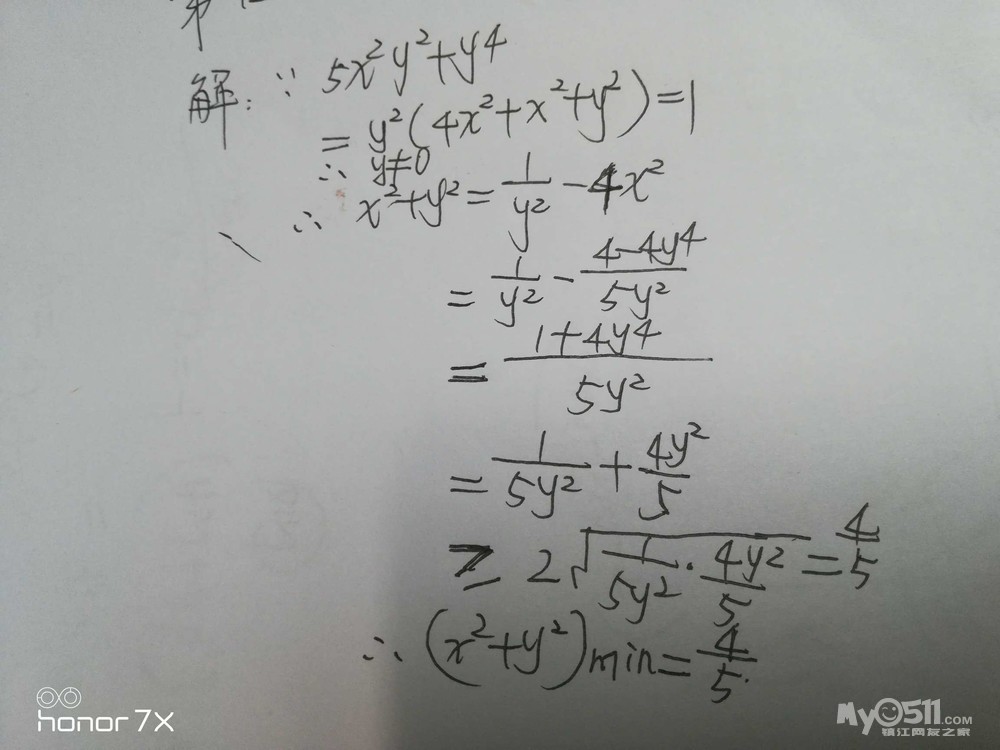 解: ∵ 5x²y²+y4
= y²(4x²+x²+y²)=1
∴ y≠0
∴ x²+y²= 1/y² -4x²
= 1/y² - 4-4y4/5y²
= 1+4y4/5y²
= 1/5y² + 4y²/5
≥ 2√1/5y² · 4y²/5 = 4/5
∴ (x²+y²)min= 4/5
honor 7X
My0511.com
镇江网友之家